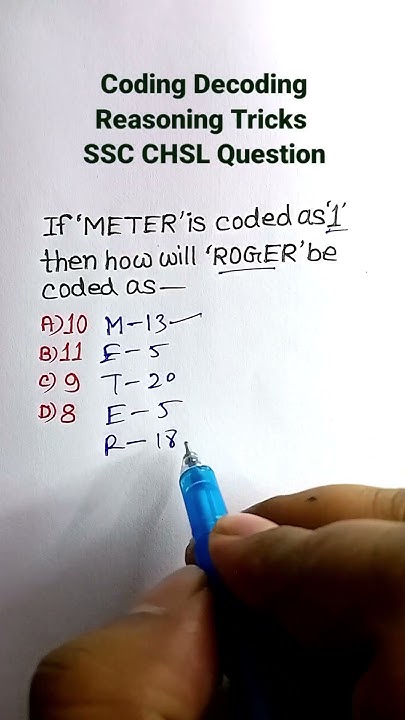 Coding Decoding
Reasoning Tricks
SSC CHSL Question
If 'METER' is coded as '1'
then how will 'ROGER' be
coded as —
A) 10 M - 13
B) 11 E - 5
C) 9 T - 20
D) 8 E - 5
R - 18